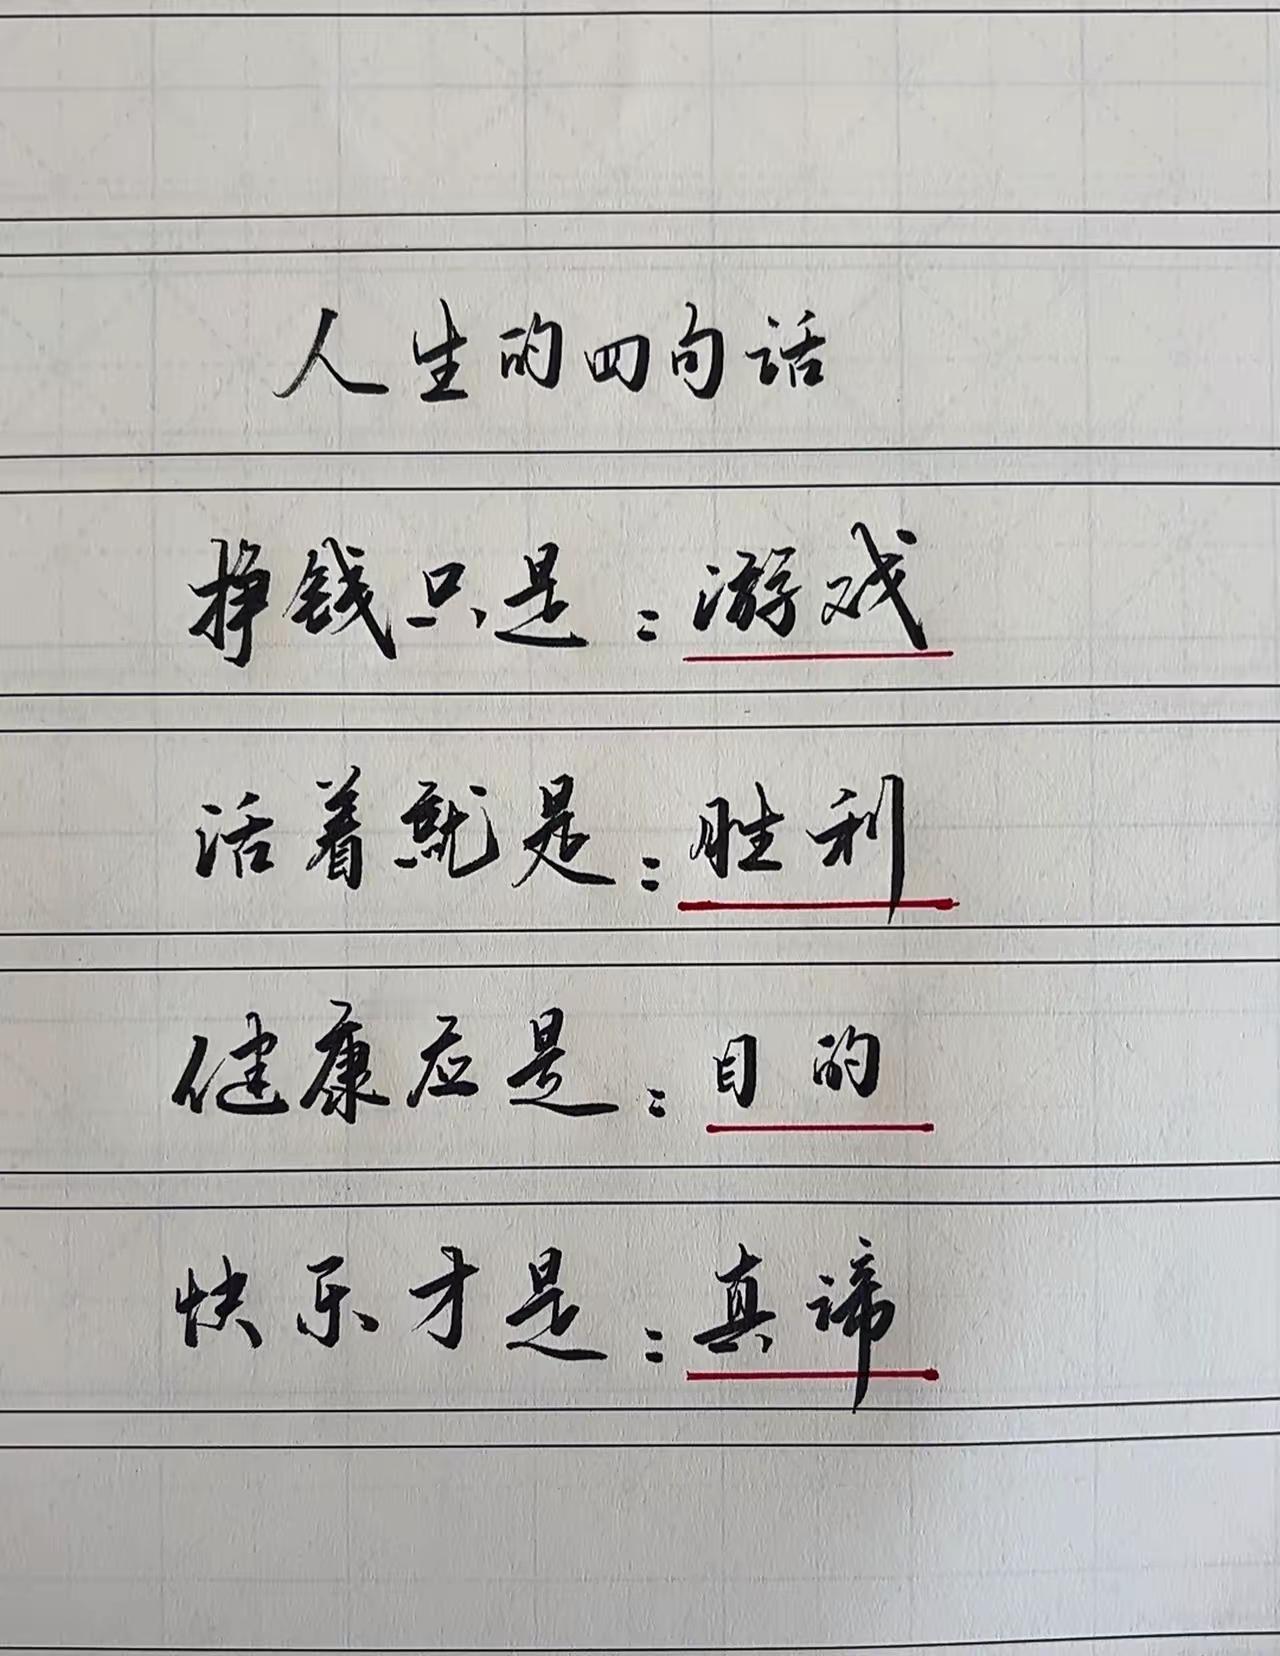 人生的四句话
挣钱只是：游戏
活着就是：胜利
健康应是：目的
快乐才是：真谛